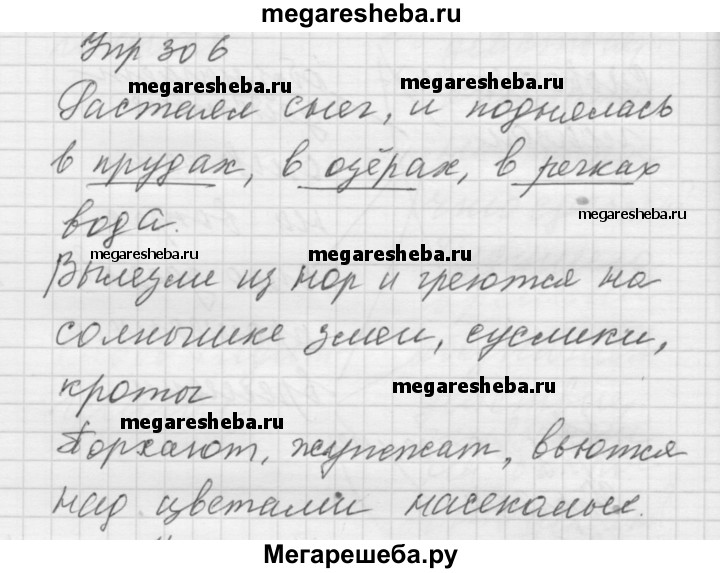 megaresheba.ru
Упр 306
Растаял снег, и поднялась
megaresheba.ru
megaresheba.ru
в прудах, в озёрах, в речках
megaresheba.ru
вода.
megaresheba.ru
megaresheba.ru
Вылезли из нор и греются на
солнышке змеи, суслики,
кроты
megaresheba.ru
megaresheba.ru
Порхают, жужжат, вьются
над цветами насекомые.
Мегарешеба.ру